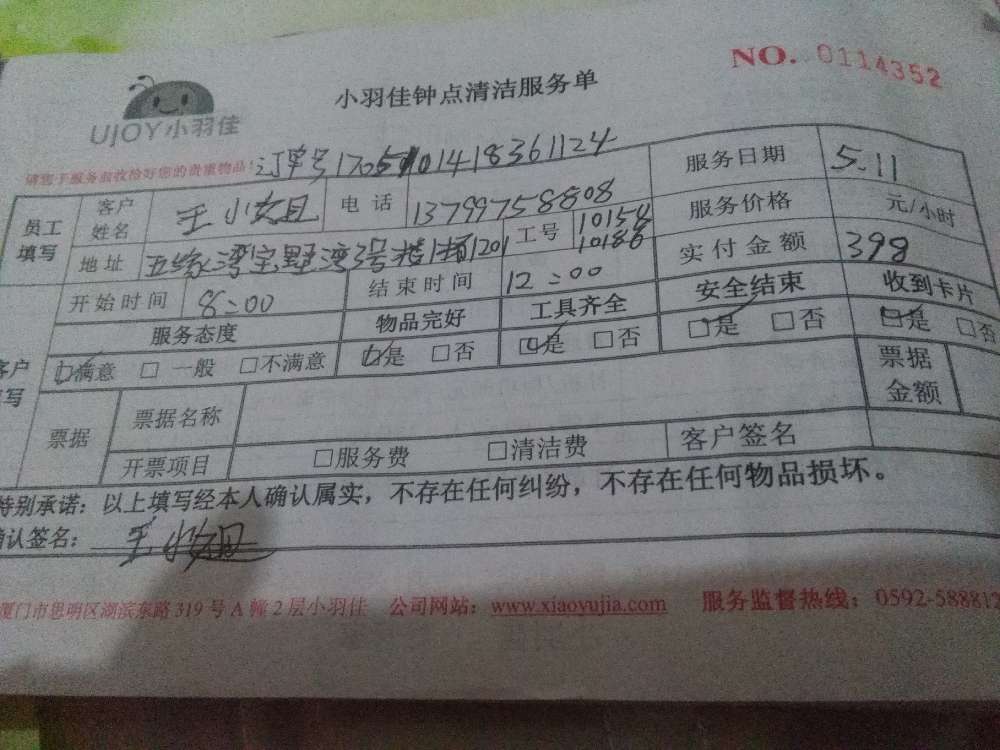 NO. 0114352
小羽佳钟点清洁服务单
UJOY小羽佳
请您于服务前收拾好您的贵重物品! 订单号170510141836 1124
员工填写 客户姓名 王小姐 电话 13799758808 服务日期 5.11
地址 五缘湾宝墅湾3号楼1梯1201 工号 10154 10186 服务价格 元/小时
开始时间 8:00 结束时间 12:00 实付金额 398
服务态度 物品完好 工具齐全 安全结束 收到卡片
客户填写 □满意 □一般 □不满意 □是 □否 □是 □否 □是 □否 □是 □否
票据 票据名称 票据金额
开票项目 □服务费 □清洁费 客户签名
特别承诺：以上填写经本人确认属实，不存在任何纠纷，不存在任何物品损坏。
确认签名： 王小姐
厦门市思明区湖滨东路319号A幢2层小羽佳 公司网站：www.xiaoyujia.com 服务监督热线：0592-588812